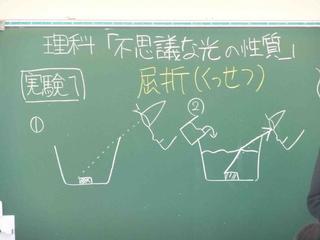 理科「不思議な光の性質」
実験1 屈折(くっせつ)
① ②